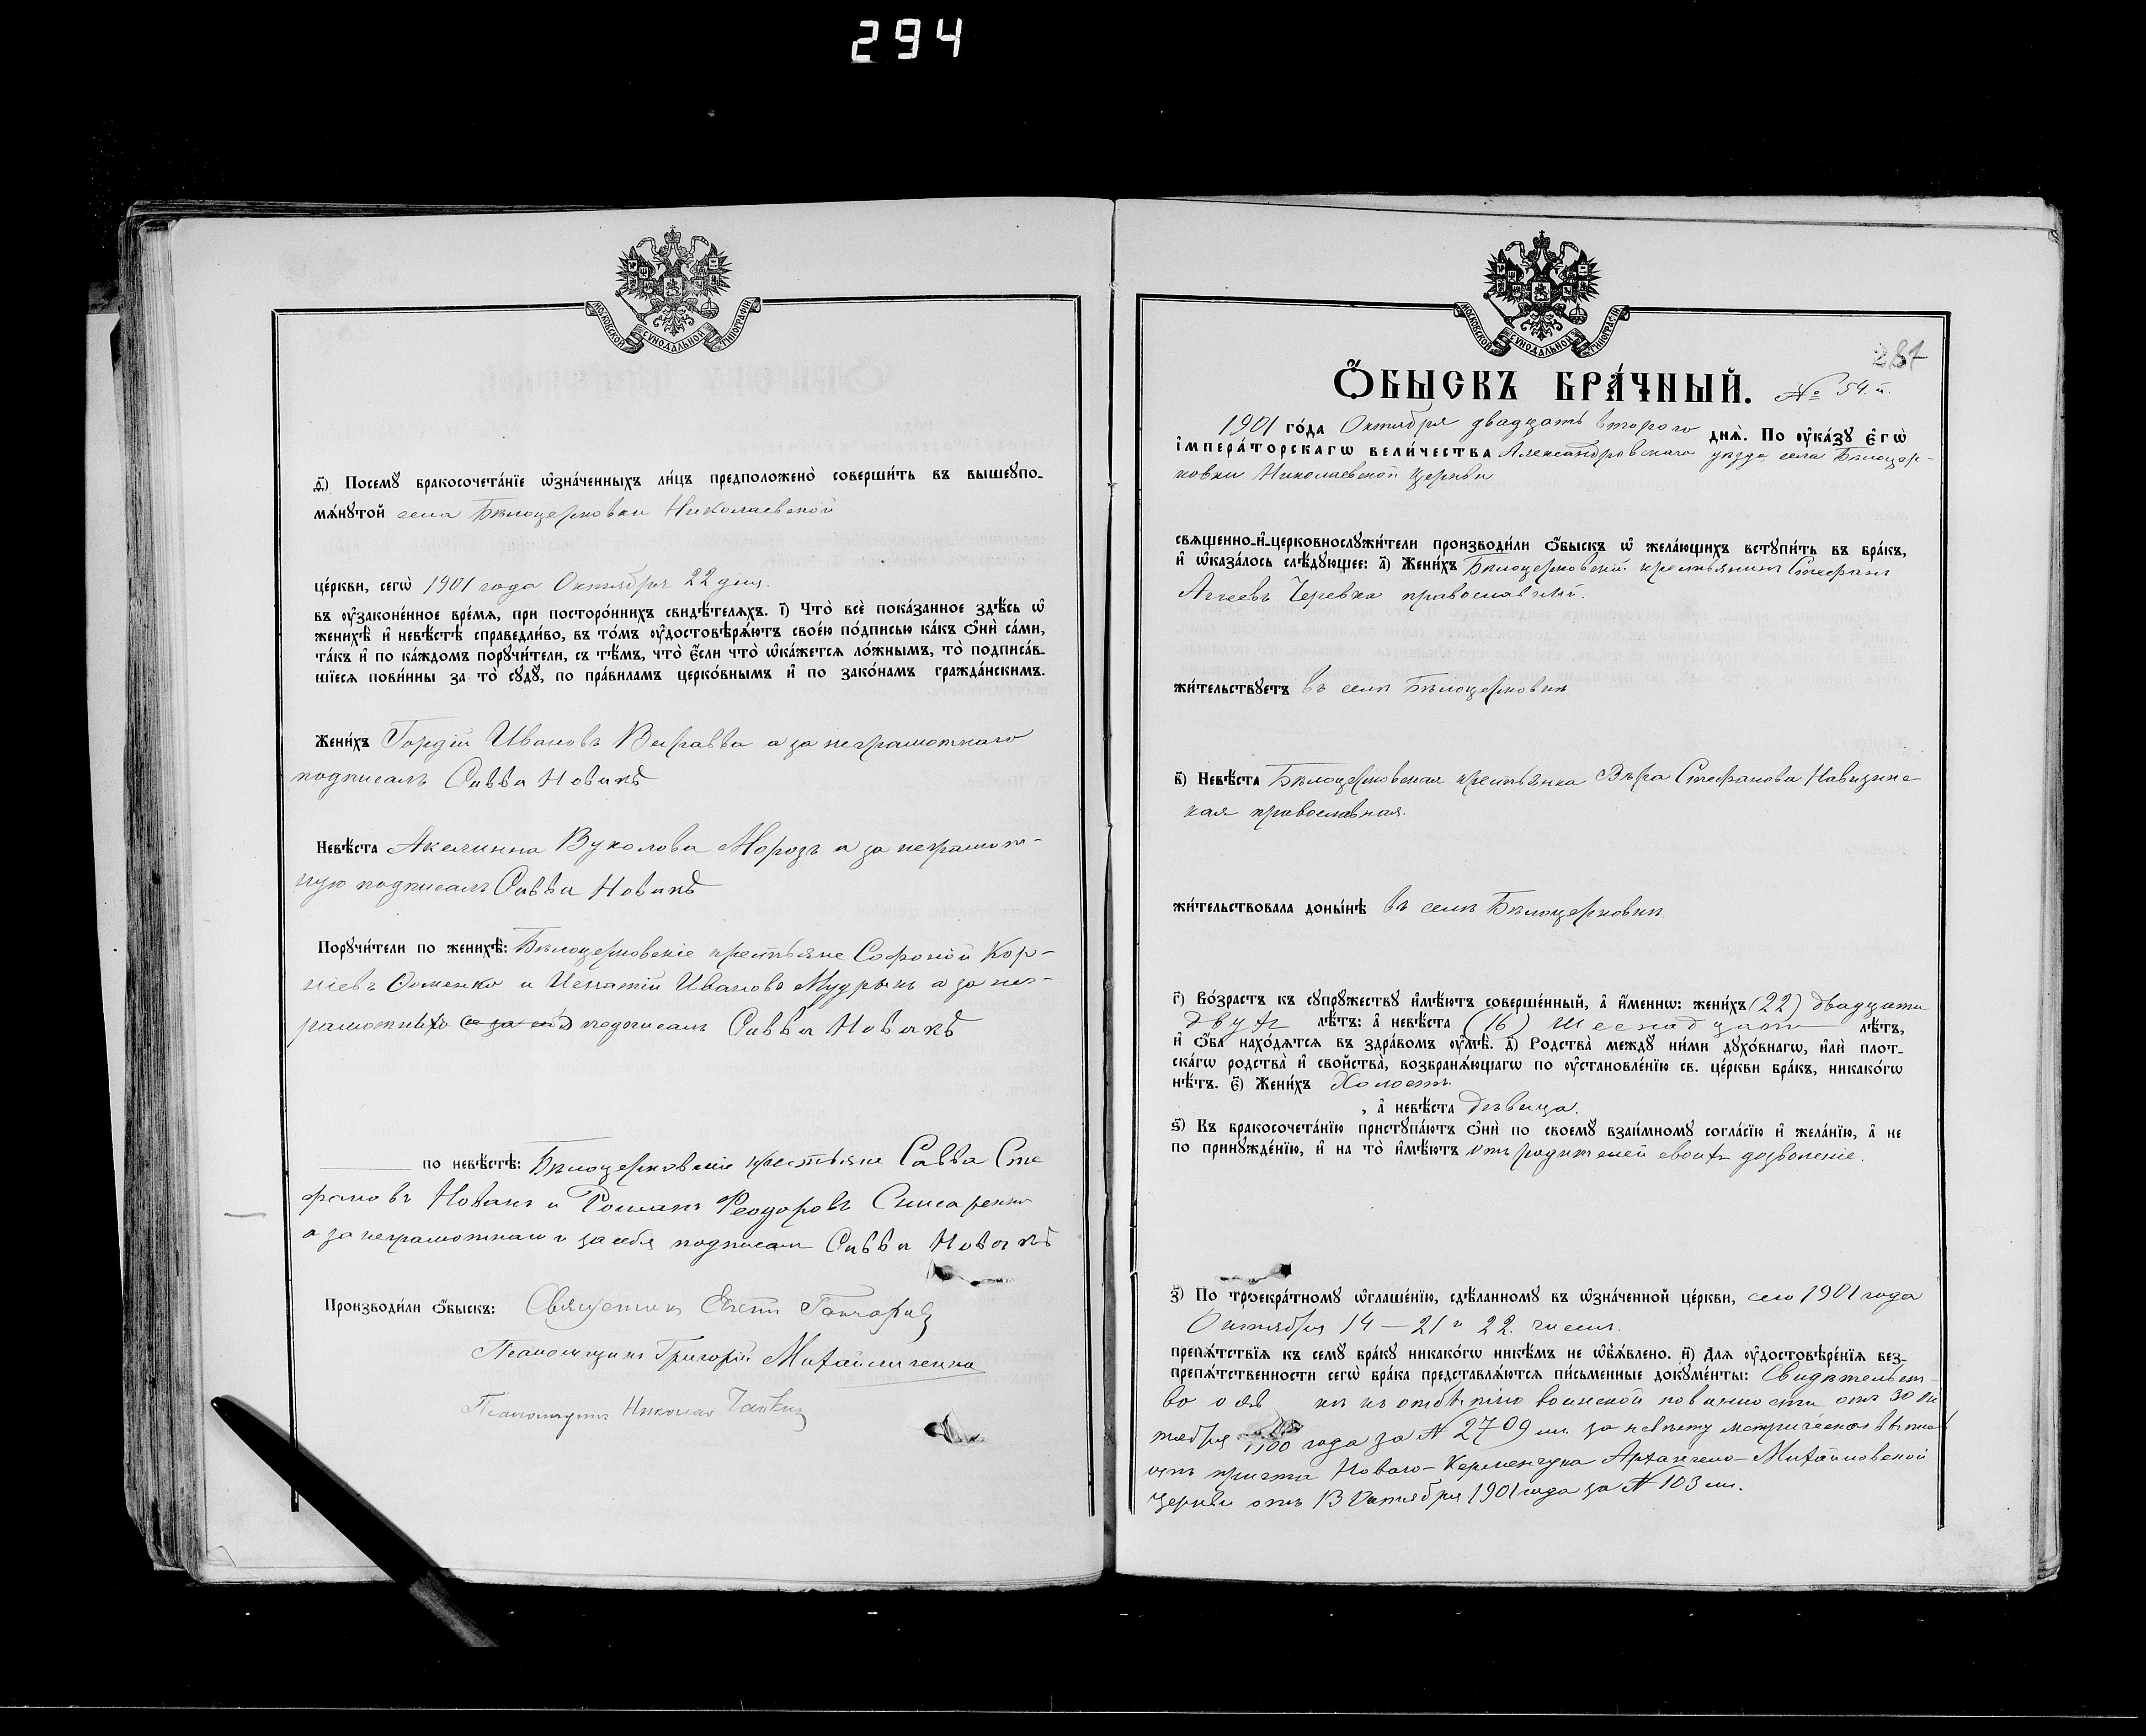 294
МОСКОВСКОЙ СѴНОДАЛЬНОЙ ТИПОГРАФІИ
д҃і) Посемꙋ бракосочета́нїе ѡ҆зна́ченныхъ ли́цъ предположено̀ соверши́ть въ вышеꙋпо-
мѧ́нꙋтой села Бѣлоцерковки Николаевской
це́ркви, сегѡ̀ 1901 года Октября 22 дня.
въ ᲂу҆зако́ненное вре́мѧ, при посторо́ннихъ свидѣ́телѧхъ. і҃) Что̀ всѐ пока́занное здѣ́сь ѡ҆
женихѣ̀ и҆ невѣ́стѣ справедли́во, въ то́мъ ᲂу҆достовѣрѧ́ютъ свое́ю по́дписью ка́къ ѻ҆нѝ са́ми,
та́къ и҆ по ка́ждомъ порꙋчи́тели, съ тѣ́мъ, что̀ є҆́сли что̀ ѡ҆ка́жетсѧ ло́жнымъ, то̀ подписа́в-
шїесѧ пови́нны за то̀ сꙋдꙋ̀, по пра́виламъ церко́внымъ и҆ по зако́намъ гражда́нскимъ.
Жени́хъ Гордій Ивановъ Варавва а за неграмотнаго
подписалъ Савва Новакъ
Невѣ́ста Акилинна Вуколова Морозъ а за неграмот-
ную подписалъ Савва Новакъ
Порꙋчи́тели по женихѣ̀: Бѣлоцерковскіе крестьяне Софоній Кор-
ніевъ Фоменко и Игнатій Ивановъ Мудрыкъ а за нег-
рамотныхъ подписалъ Савва Новакъ
по невѣ́стѣ: Бѣлоцерковскіе крестьяне Савва Сте
фановъ Новакъ и Романъ Ѳеодоровъ Слисаренко
а за неграмотнаго и за себя подписалъ Савва Новакъ
Производи́ли ѻ҆́быскъ: Священникъ Гончаровъ
Псаломщикъ Григорій Михайличенко
Псаломщикъ Николай
МОСКОВСКОЙ СѴНОДАЛЬНОЙ ТИПОГРАФІИ
287
Ѻ҆́БЫСКЪ БРА́ЧНЫЙ. № 54.й.
1901 го́да Октября двадцать второго днѧ̀. По ᲂу҆ка́зꙋ є҆гѡ̀
і҆мпера́торскагѡ вели́чества Александровскаго уѣзда села Бѣлоцер-
ковки Николаевской церкви
свѧщенно-и҆-церковнослꙋжи́тели производи́ли ѻ҆́быскъ ѡ҆ жела́ющихъ встꙋпи́ть въ бра́къ,
и҆ ѡ҆каза́лось слѣ́дꙋющее: а҃) Жени́хъ Бѣлоцерковскій крестьянинъ Стефанъ
Аггеевъ Черевко православный.
жи́тельствꙋетъ въ селѣ Бѣлоцерковкѣ
в҃) Невѣ́ста Бѣлоцерковская крестьянка Вѣра Стефанова Навизинс-
кая православная.
жи́тельствовала доны́нѣ въ селѣ Бѣлоцерковкѣ.
г҃) Во́зрастъ къ сꙋпрꙋ́жествꙋ и҆мѣ́ютъ соверше́нный, а҆ и҆́меннѡ: жени́хъ (22) двадцати
двухъ лѣ́тъ: а҆ невѣ́ста (16) шеснадцати лѣ́тъ,
и҆ ѻ҆́ба нахо́дѧтсѧ въ здра́вомъ ᲂу҆мѣ̀. д҃) Родства̀ междꙋ ни́ми дꙋхо́внагѡ, и҆лѝ плот-
ска́гѡ родства̀ и҆ сво́йства̀, возбранѧ́ющагѡ по ᲂу҆становле́нїю св. це́ркви бра́къ, никако́гѡ
нѣ́тъ. є҃) Жени́хъ Холостъ
, а҆ невѣ́ста дѣвица.
ѕ҃) Къ бракосочета́нїю пристꙋпа́ютъ ѻ҆нѝ по своемꙋ взаи́мномꙋ согла́сїю и҆ жела́нїю, а҆ не
по принꙋжде́нїю, и҆ на то̀ и҆мѣ́ютъ отъ родителей своихъ дозволеніе.
з҃) По троекра́тномꙋ ѡ҆глаше́нїю, сдѣ́ланномꙋ въ ѡ҆зна́ченной це́ркви, сего 1901 года
Октября 14 — 21 и 22. числа.
препѧ́тствїѧ къ семꙋ бра́кꙋ никако́гѡ никѣ́мъ не ѡ҆б̾ѧ́влено. и҃) Длѧ ᲂу҆достовѣре́нїѧ без-
препѧ́тственности сегѡ̀ бра́ка представлѧ́ютсѧ пи́сьменные докꙋме́нты: Свидѣтельст-
во о явкѣ къ отбытію воинской повинности отъ 30 Ок
тября 1900 года за № 2709 мъ за невѣсту метрическая выпись
отъ причта Новаго-Керменчука Архангело-Михайловской
Церкви отъ 13 Октября 1901 года за № 103 мъ.